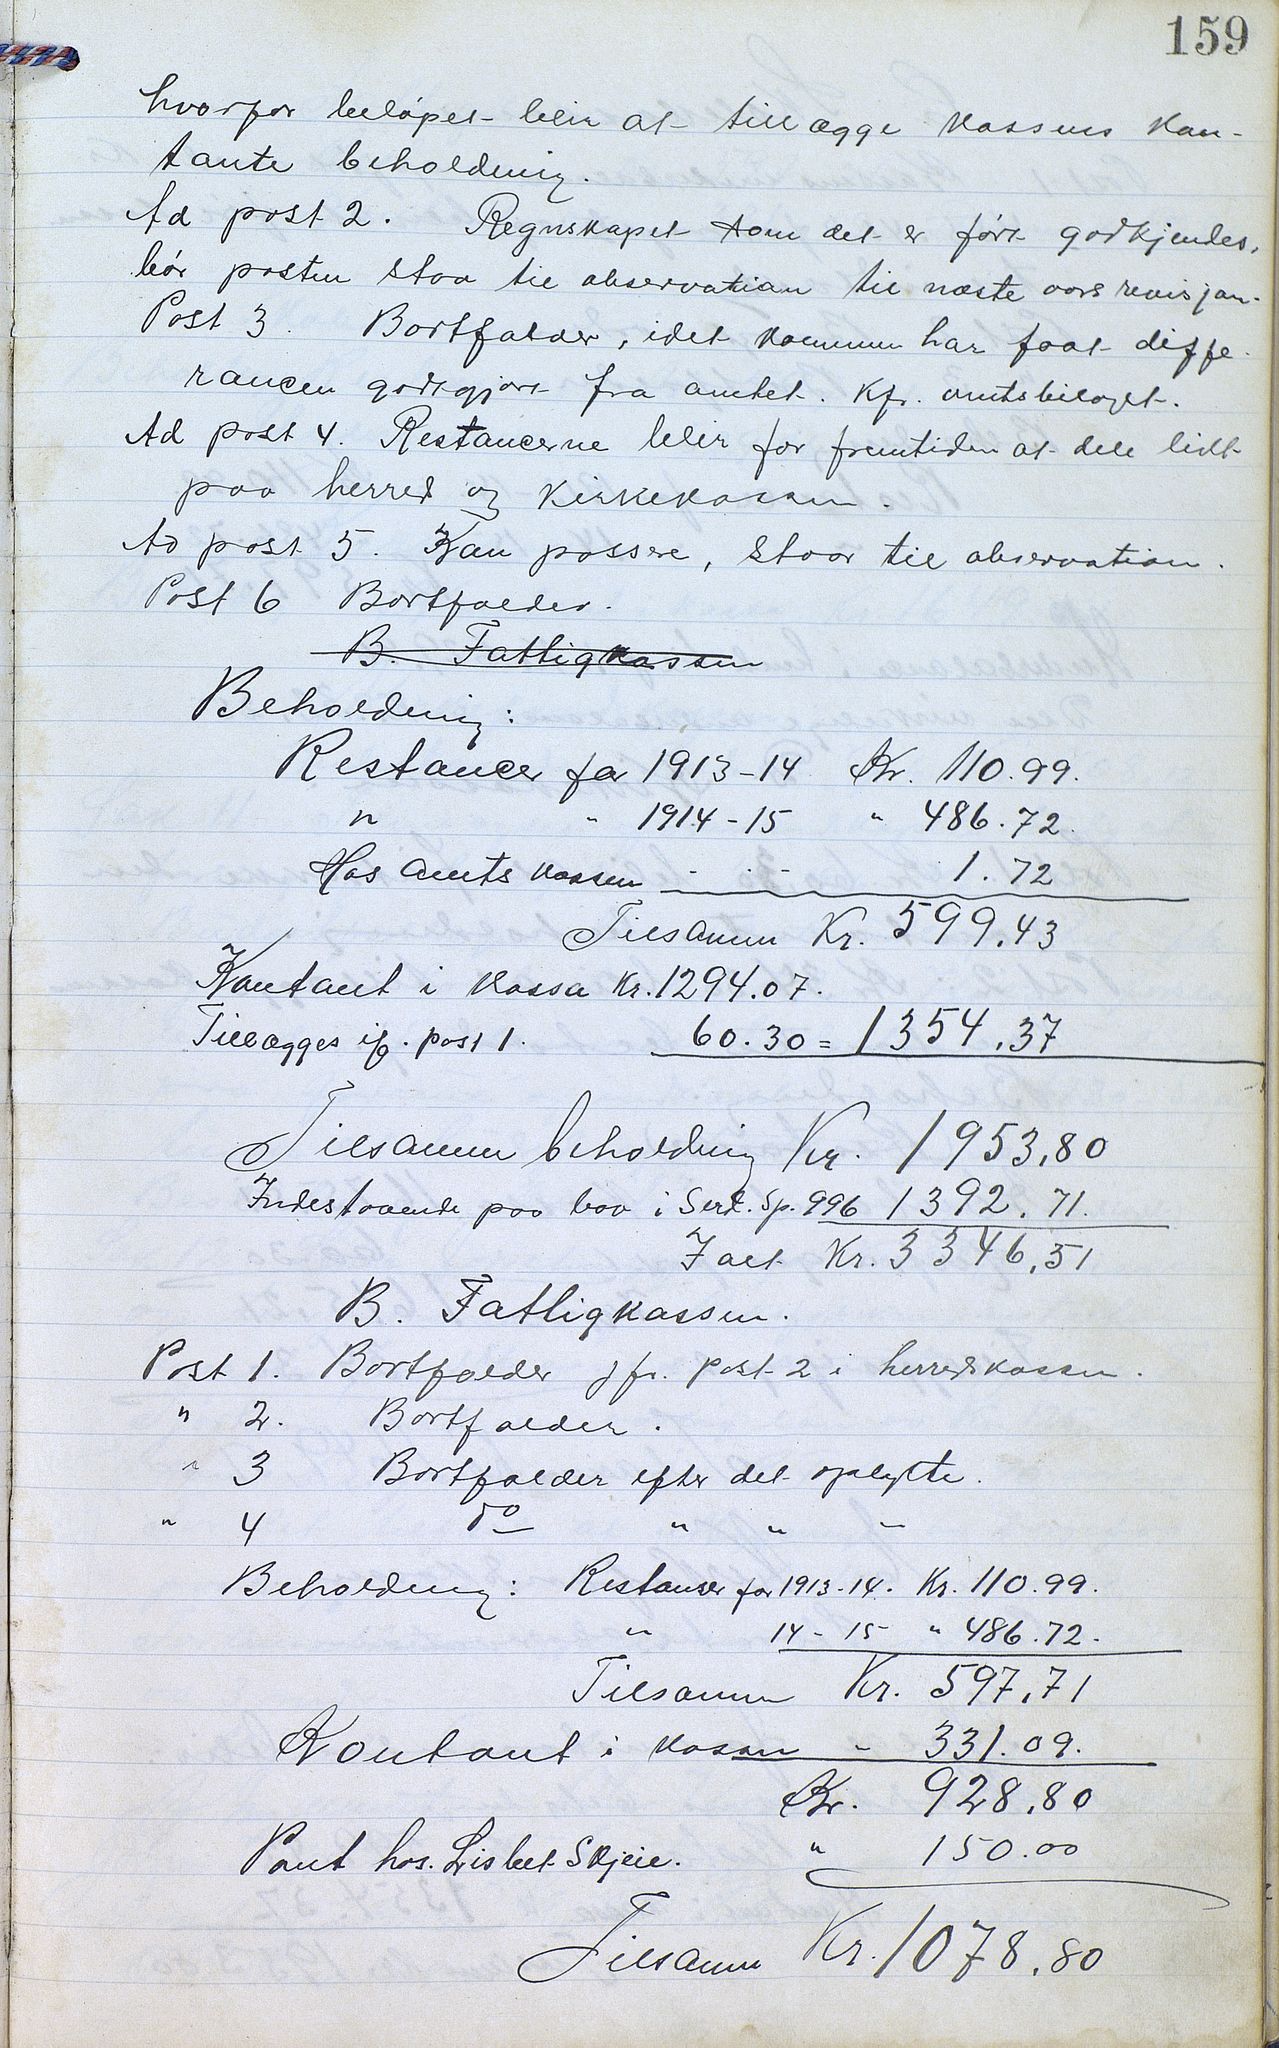 159
hvorfor beløpet blir at tillægge kassens kon-
tante beholdning.
Ad post 2. Regnskapet som det er ført godkjendes,
bør posten staa til observation til næste aars revisjon.
Post 3. Bortfalder, idet kommunen har faat diffe-
rancen godtgjort fra amtet. Kfr. amtsbilaget.
Ad post 4. Restancerne blir for fremtiden at dele likt
paa herred og kirkekassen.
Ad post 5. Kan passere, staar til observation.
Post 6 Bortfalder.
B. Fattigkassen
Beholdning:
Restancer for 1913-14 Kr. 110.99.
" " 1914-15 " 486.72.
Hos amtskassen - - - 1.72
Tilsammen Kr. 599,43
Kontant i kassa Kr. 1294.07.
Tillægges if. post 1. 60.30 = 1354,37
Tilsammen beholdning Kr. 1953,80
Indestaaende paa bok i Setd. Sp. 996 1392.71.
I alt Kr. 3346,51
B. Fattigkassen.
Post 1. Bortfalder jfr. post 2 i herredskassen.
" 2. Bortfalder.
" 3 Bortfalder efter det oplyste.
" 4 do " " "
Beholdning: Restanser for 1913-14. Kr. 110.99.
" 14-15 " 486.72.
Tilsammen Kr. 597,71
Kontant i kassen " 331.09.
Kr. 928,80
Pant hos. Lisbet Skjeie. " 150.00
Tilsammen Kr. 1078,80